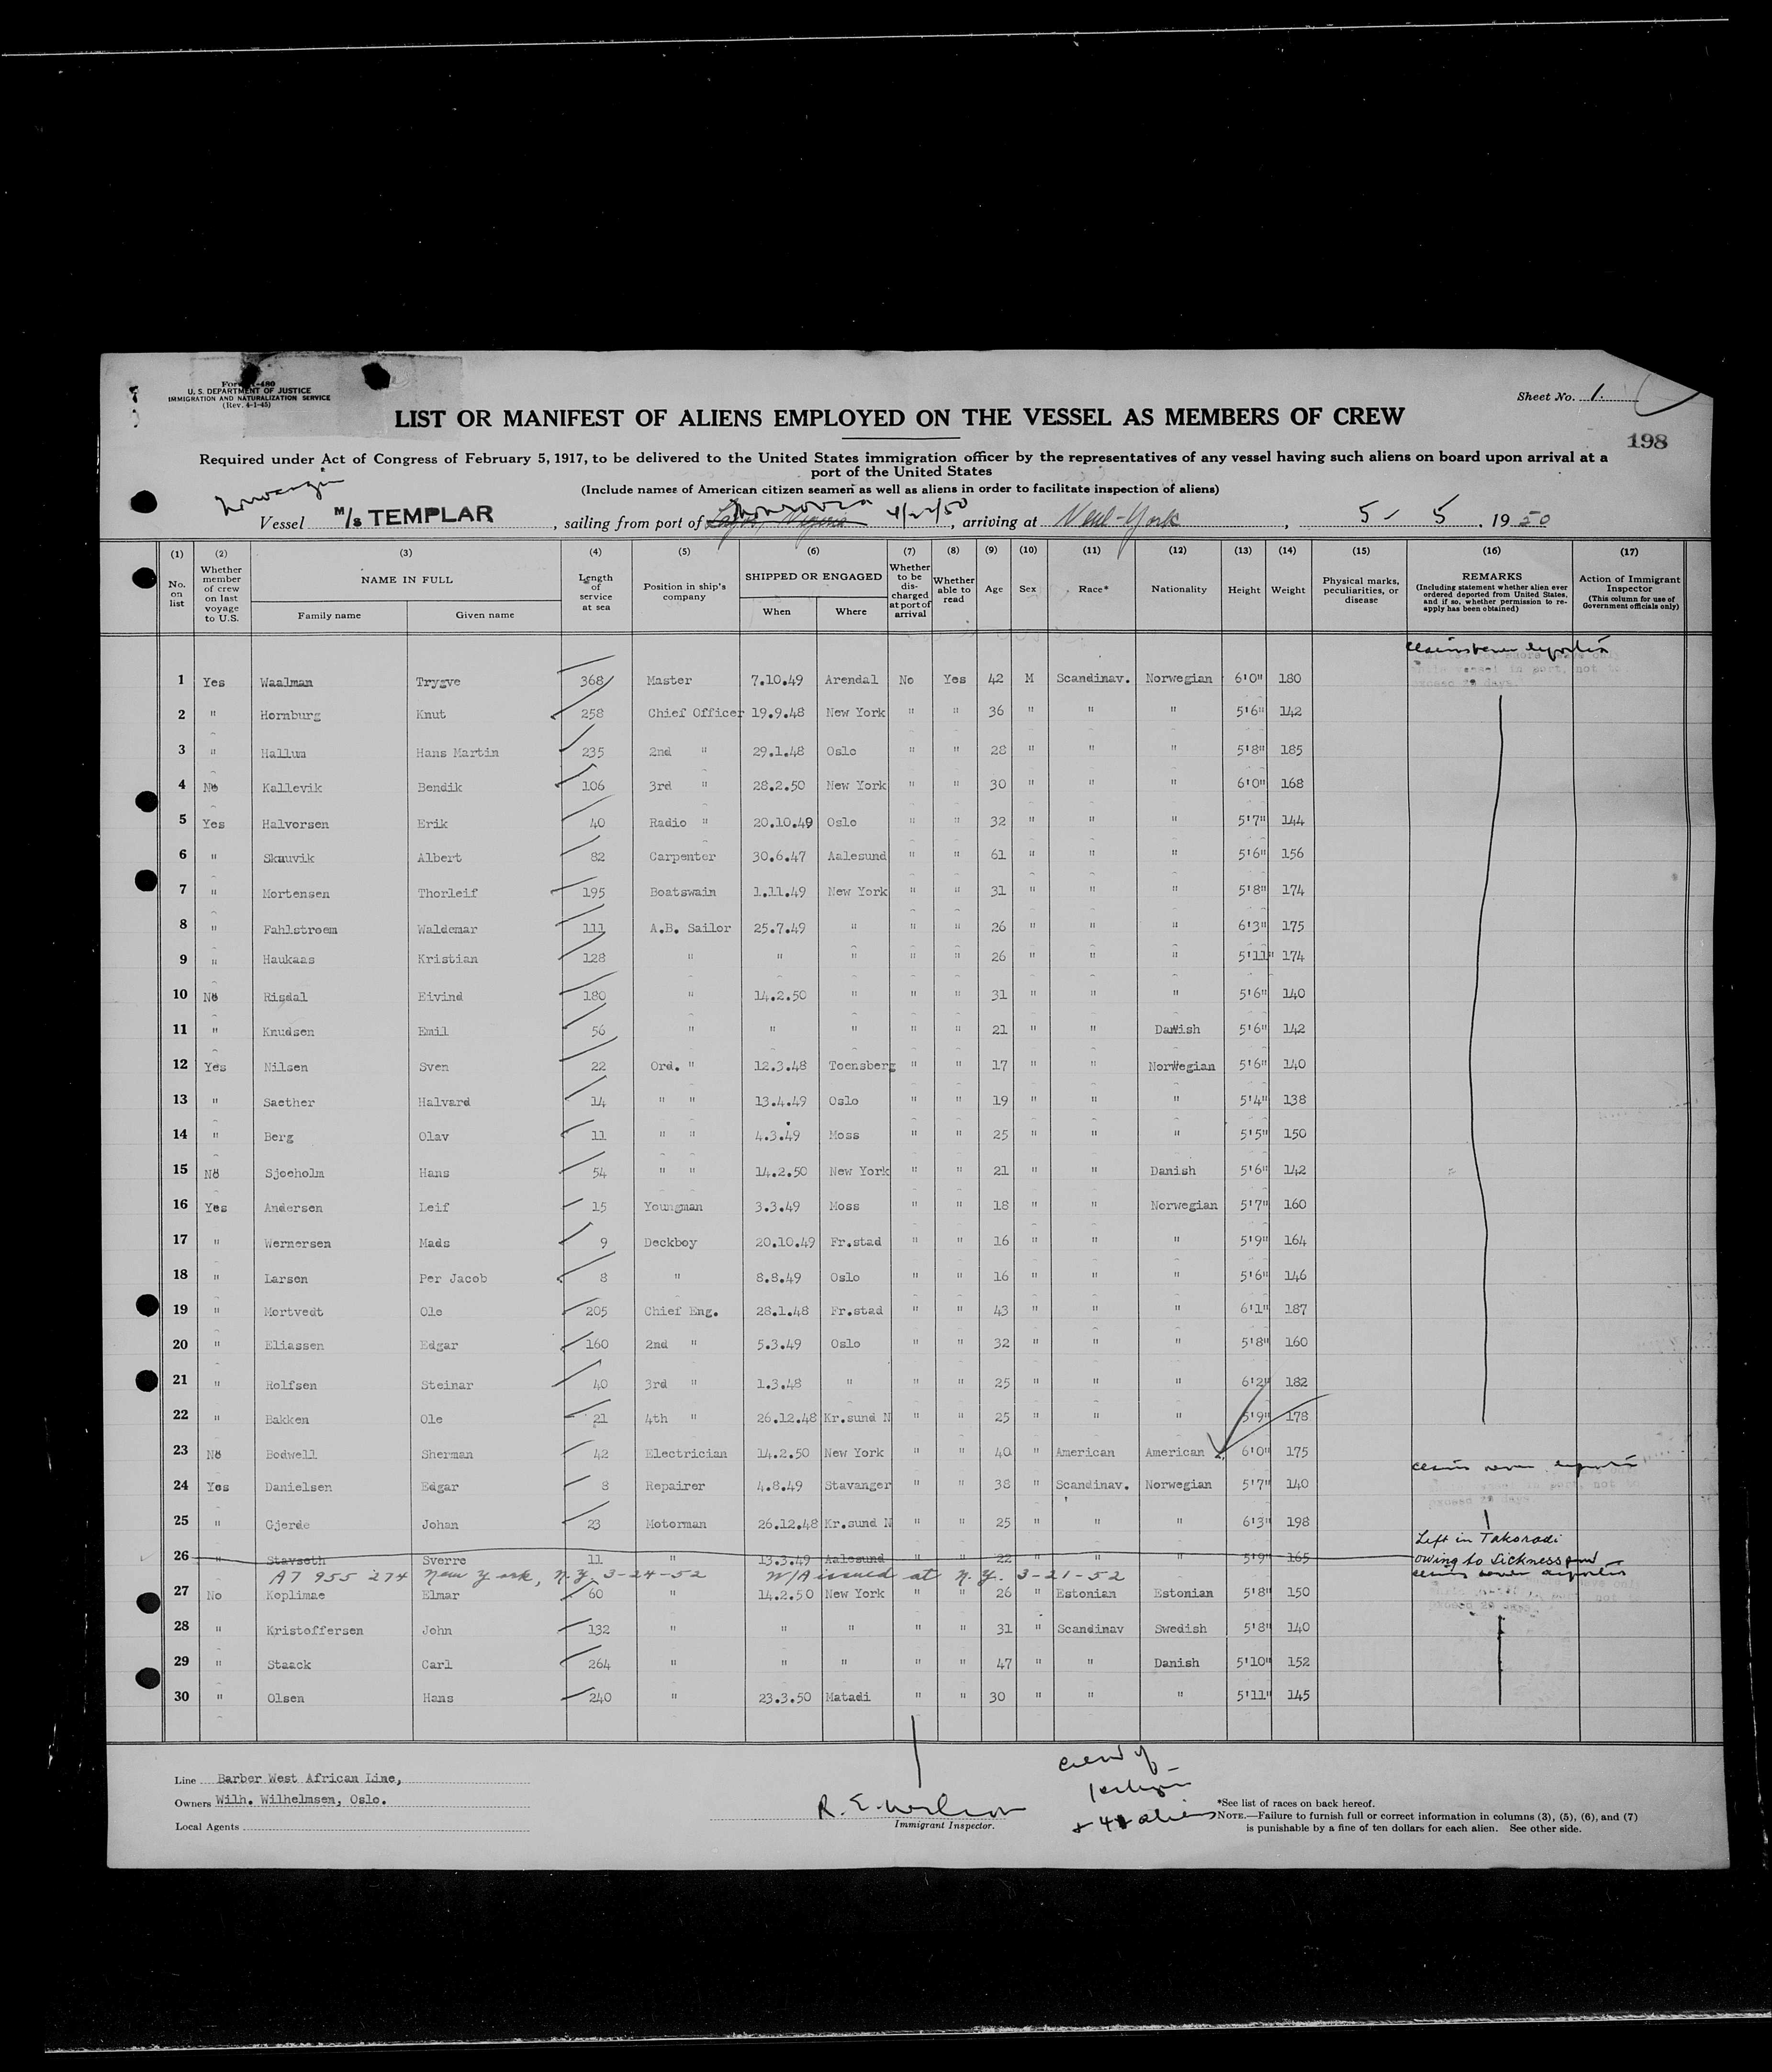 Form I-480
U. S. DEPARTMENT OF JUSTICE
IMMIGRATION AND NATURALIZATION SERVICE
(Rev. 4-1-45)
Sheet No. 1.
LIST OR MANIFEST OF ALIENS EMPLOYED ON THE VESSEL AS MEMBERS OF CREW
198
Required under Act of Congress of February 5, 1917, to be delivered to the United States immigration officer by the representatives of any vessel having such aliens on board upon arrival at a
port of the United States
(Include names of American citizen seamen as well as aliens in order to facilitate inspection of aliens)
Norwegian
Vessel M/s TEMPLAR, sailing from port of Lagos, Nigeria Monrovia 4/22/50, arriving at New-York, 5 - 5, 1950
(1) (2) (3) (4) (5) (6) (7) (8) (9) (10) (11) (12) (13) (14) (15) (16) (17)
No. on list
Whether member of crew on last voyage to U.S.
NAME IN FULL
Family name Given name
Length of service at sea
Position in ship's company
SHIPPED OR ENGAGED
When Where
Whether to be discharged at port of arrival
Whether able to read
Age
Sex
Race*
Nationality
Height
Weight
Physical marks, peculiarities, or disease
REMARKS
(Including statement whether alien ever ordered deported from United States, and if so, whether permission to reapply has been obtained)
Action of Immigrant Inspector
(This column for use of Government officials only)
1 Yes Waalman Trygve 368 Master 7.10.49 Arendal No Yes 42 M Scandinav. Norwegian 6'0" 180
2 " Hornburg Knut 258 Chief Officer 19.9.48 New York " " 36 " " " 5'6" 142
3 " Hallum Hans Martin 235 2nd " 29.1.48 Oslo " " 28 " " " 5'8" 185
4 No Kallevik Bendik 106 3rd " 28.2.50 New York " " 30 " " " 6'0" 168
5 Yes Halvorsen Erik 40 Radio " 20.10.49 Oslo " " 32 " " " 5'7" 144
6 " Skauvik Albert 82 Carpenter 30.6.47 Aalesund " " 61 " " " 5'6" 156
7 " Mortensen Thorleif 195 Boatswain 1.11.49 New York " " 31 " " " 5'8" 174
8 " Fahlstroem Waldemar 111 A.B. Sailor 25.7.49 " " " 26 " " " 6'3" 175
9 " Haukaas Kristian 128 " " " " " 26 " " " 5'11" 174
10 No Risdal Eivind 180 " 14.2.50 " " " 31 " " " 5'6" 140
11 " Knudsen Emil 56 " " " " " 21 " " Danish 5'6" 142
12 Yes Nilsen Sven 22 Ord. " 12.3.48 Toensberg " " 17 " " Norwegian 5'6" 140
13 " Saether Halvard 14 " " 13.4.49 Oslo " " 19 " " " 5'4" 138
14 " Berg Olav 11 " " 4.3.49 Moss " " 25 " " " 5'5" 150
15 No Sjoeholm Hans 54 " " 14.2.50 New York " " 21 " " Danish 5'6" 142
16 Yes Andersen Leif 15 Youngman 3.3.49 Moss " " 18 " " Norwegian 5'7" 160
17 " Wernersen Mads 9 Deckboy 20.10.49 Fr.stad " " 16 " " " 5'9" 164
18 " Larsen Per Jacob 8 " 8.8.49 Oslo " " 16 " " " 5'6" 146
19 " Mortvedt Ole 205 Chief Eng. 28.1.48 Fr.stad " " 43 " " " 6'1" 187
20 " Eliassen Edgar 160 2nd " 5.3.49 Oslo " " 32 " " " 5'8" 160
21 " Rolfsen Steinar 40 3rd " 1.3.48 " " " 25 " " " 6'2" 182
22 " Bakken Ole 21 4th " 26.12.48 Kr.sund N " " 25 " " " 5'9" 178
23 No Bodwell Sherman 42 Electrician 14.2.50 New York " " 40 " American American 6'0" 175
24 Yes Danielsen Edgar 8 Repairer 4.8.49 Stavanger " " 38 " Scandinav. Norwegian 5'7" 140
25 " Gjerde Johan 23 Motorman 26.12.48 Kr.sund N " " 25 " " " 6'3" 198
26 " Stavseth Sverre 11 " 13.3.49 Aalesund " " 22 " " " 5'9" 165 Left in Takoradi owing to sickness
A7 955 274 New York, N.Y. 3-24-52 W/A issued at N.Y. 3-21-52
27 No Koplimae Elmar 60 " 14.2.50 New York " " 26 " Estonian Estonian 5'8" 150
28 " Kristoffersen John 132 " " " " " 31 " Scandinav Swedish 5'8" 140
29 " Staack Carl 264 " " " " " 47 " " Danish 5'10" 152
30 " Olsen Hans 240 " 23.3.50 Matadi " " 30 " " " 5'11" 145
Line Barber West African Line,
Owners Wilh. Wilhelmsen, Oslo.
Local Agents
R. E. Wilson
Immigrant Inspector.
*See list of races on back hereof.
NOTE.—Failure to furnish full or correct information in columns (3), (5), (6), and (7)
is punishable by a fine of ten dollars for each alien. See other side.